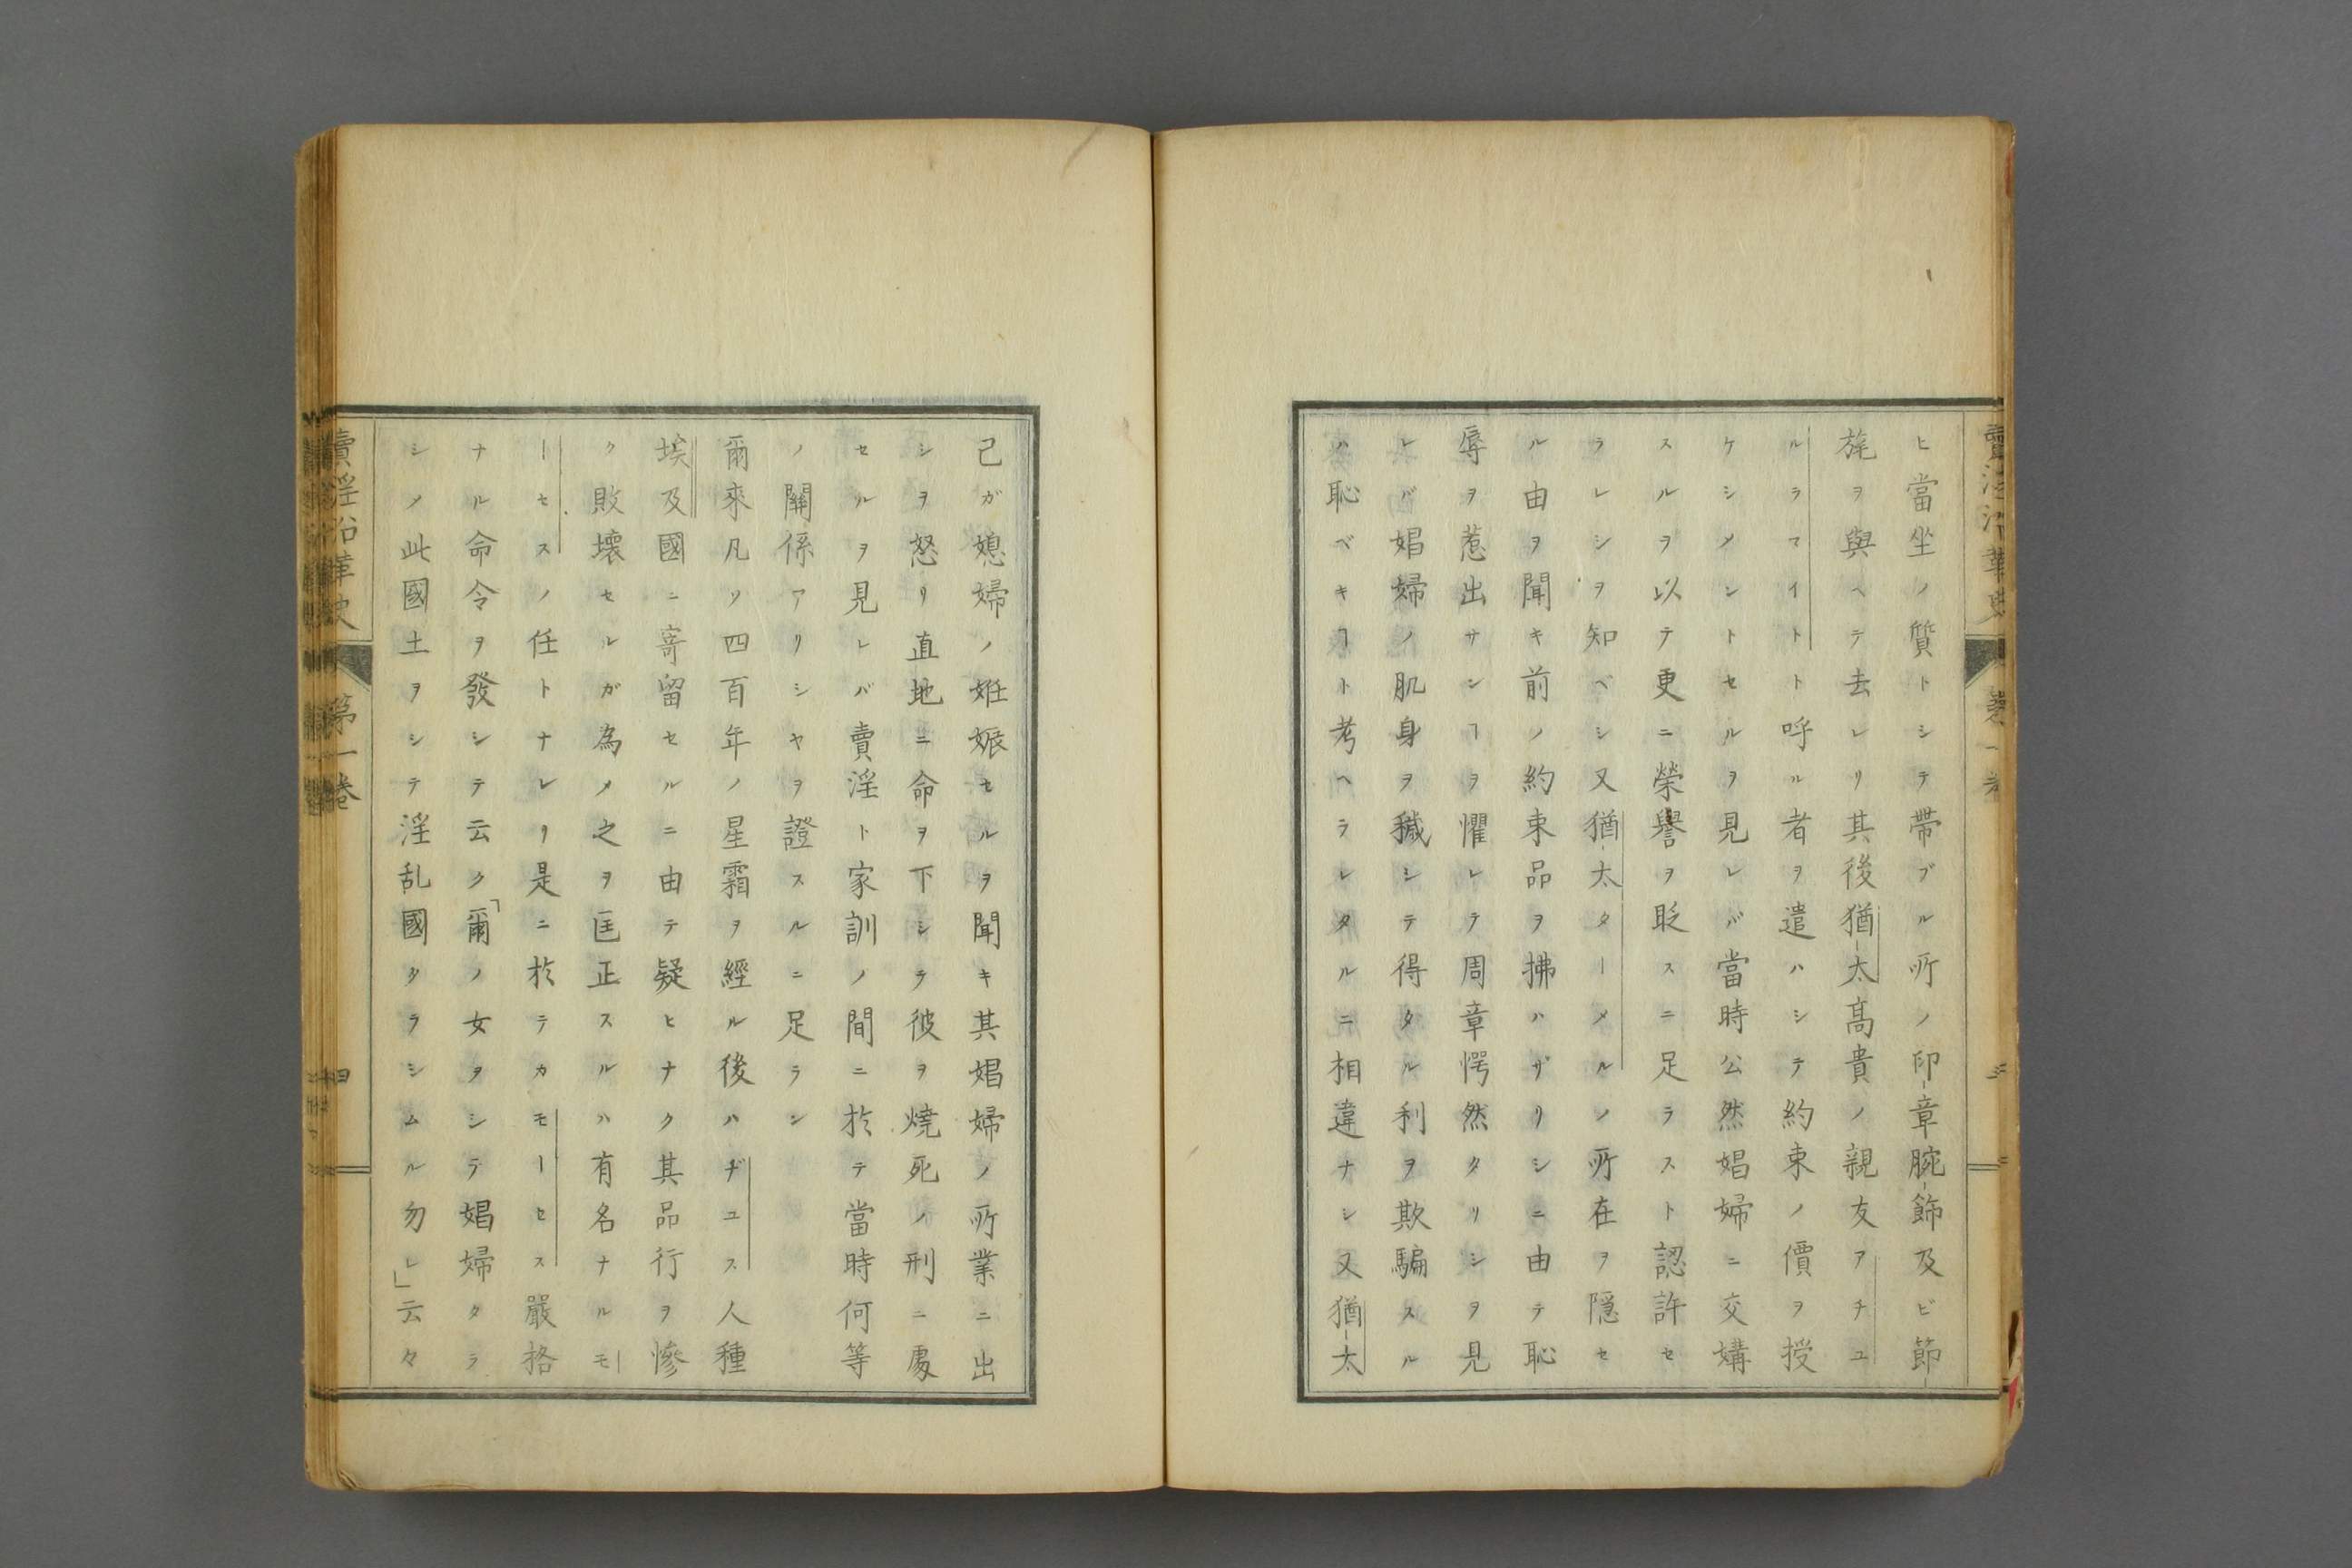 ヒ當坐ノ質トシテ帶ブル所ノ印章腕飾及ビ節
旄ヲ與ヘテ去レリ其後猶太髙貴ノ親友アチユ
ルラマイトト呼ル者ヲ遣ハシテ約束ノ價ヲ授
ケシメントセルヲ見レバ當時公然娼婦ニ交媾
スルヲ以テ更ニ榮譽ヲ貶スニ足ラスト認許セ
ラレシヲ知ベシ又猶太ターメルノ所在ヲ隠セ
ル由ヲ聞キ前ノ約束品ヲ拂ハザリシニ由テ恥
辱ヲ惹出サンヿヲ懼レテ周章愕然タリシヲ見
レバ娼婦ノ肌身ヲ穢シテ得タル利ヲ欺騙スル
ハ恥ベキヿト考ヘラレタルニ相違ナシ又猶太
己ガ媳婦ノ姙娠セルヲ聞キ其娼婦ノ所業ニ出
シヲ怒リ直地ニ命ヲ下シテ彼ヲ燒死ノ刑ニ處
セルヲ見レバ賣淫ト家訓ノ間ニ於テ當時何等
ノ關係アリシヤヲ證スルニ足ラン
爾來凡ソ四百年ノ星霜ヲ經ル後ハヂユス人種
埃及國ニ寄留セルニ由テ疑ヒナク其品行ヲ慘
ク敗壊セルガ為メ之ヲ匡正スルハ有名ナルモ
ーセスノ任トナレリ是ニ於テカモーセス嚴格
ナル命令ヲ發シテ云ク「爾ノ女ヲシテ娼婦タラ
シメ此國土ヲシテ淫乱國タラシムル勿レ」云々
賣淫沿革史 第一卷 四